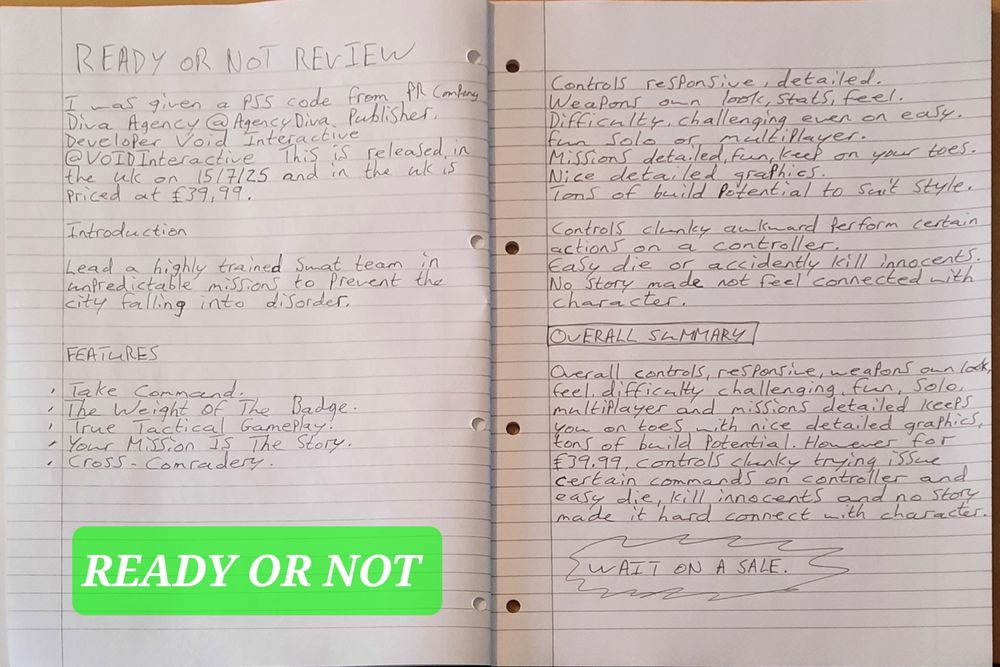 READY OR NOT REVIEW
I was given a PS5 code from PR Company
Diva Agency @AgencyDiva, Publisher,
Developer Void Interactive
@VOIDInteractive This is released in
the uk on 15/7/25 and in the uk is
Priced at £39,99.
Introduction
Lead a highly trained Swat team in
unpredictable missions to prevent the
city falling into disorder.
FEATURES
• Take Command.
• The Weight Of The Badge.
• True Tactical Gameplay.
• Your Mission Is The Story.
• Cross-Comradery.
READY OR NOT
Controls responsive, detailed.
Weapons own look, stats, feel.
Difficulty, challenging even on easy.
fun solo or multiplayer.
Missions detailed, fun, keep on your toes.
Nice detailed graphics.
Tons of build Potential to suit style.
Controls clunky awkward Perform certain
actions on a controller.
Easy die or accidently kill innocents.
No Story made not feel connected with
character.
OVERALL SUMMARY
Overall controls, responsive, weapons own look,
feel, difficulty challenging, fun, Solo,
multiplayer and missions detailed keeps
you on toes with nice detailed graphics,
tons of build Potential. However for
£39.99, controls clunky trying issue
certain commands on controller and
easy die, kill innocents and no story
made it hard connect with character.
WAIT ON A SALE.